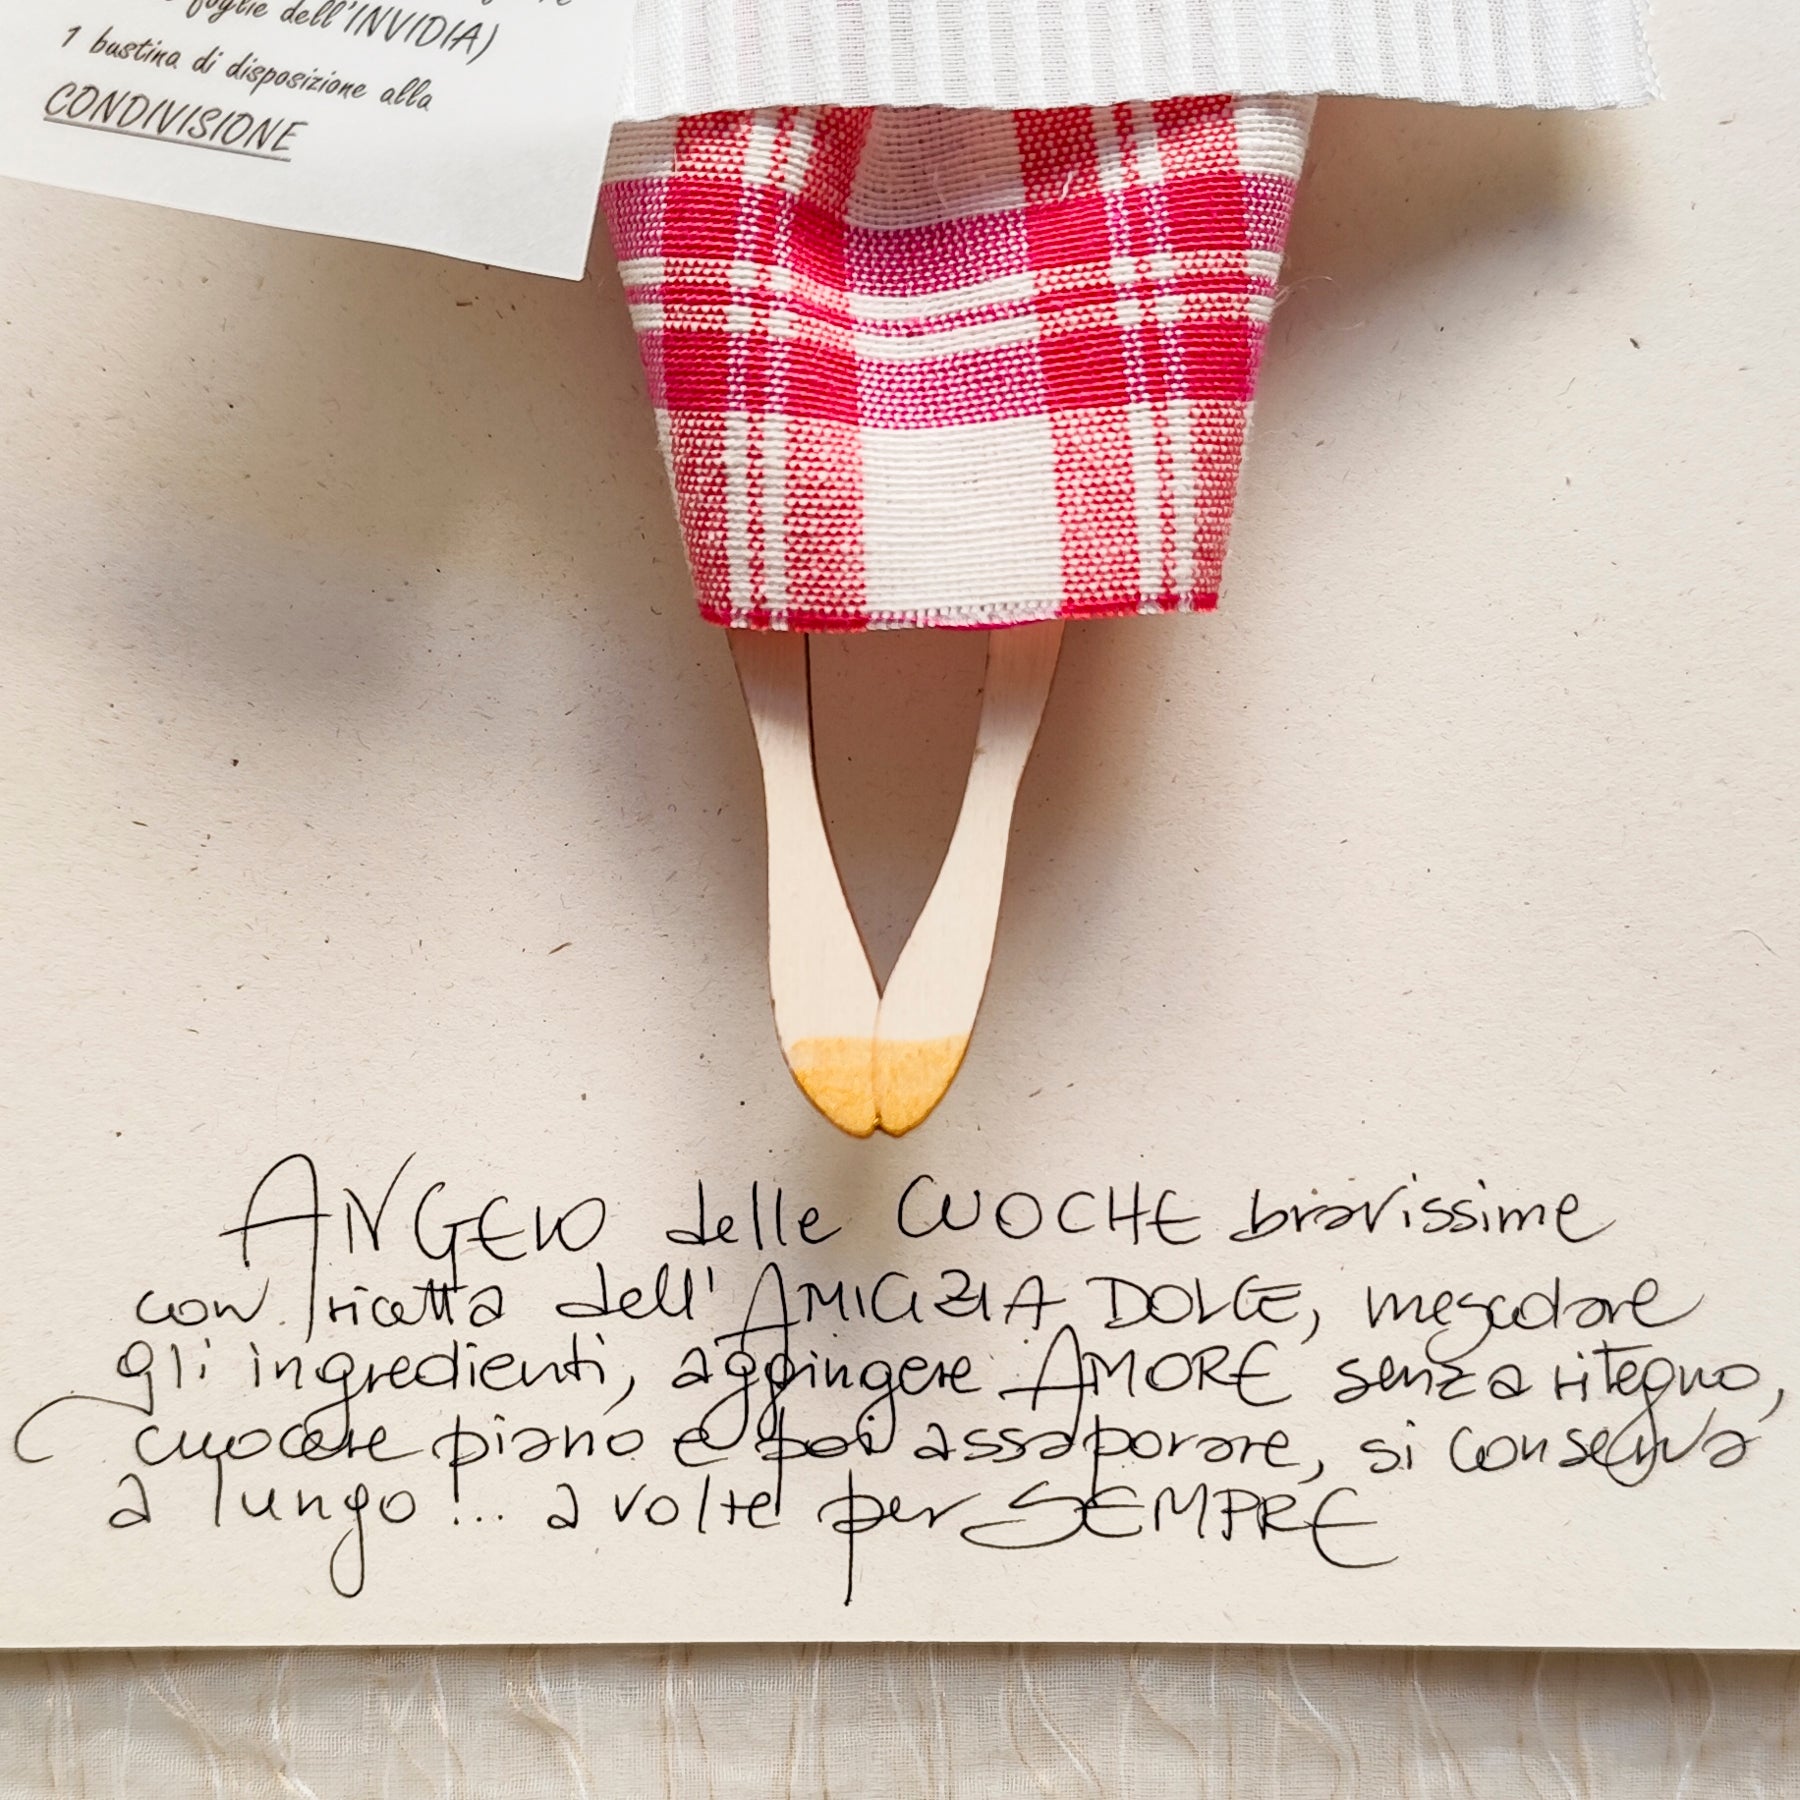 foglie dell'INVIDIA)
1 bustina di disposizione alla
CONDIVISIONE
ANGELO delle CUOCHE bravissime
con ricetta dell'AMICIZIA DOLCE, mescolare
gli ingredienti, aggiungere AMORE senza ritegno,
cuocere piano e poi assaporare, si conserva
a lungo!... a volte per SEMPRE